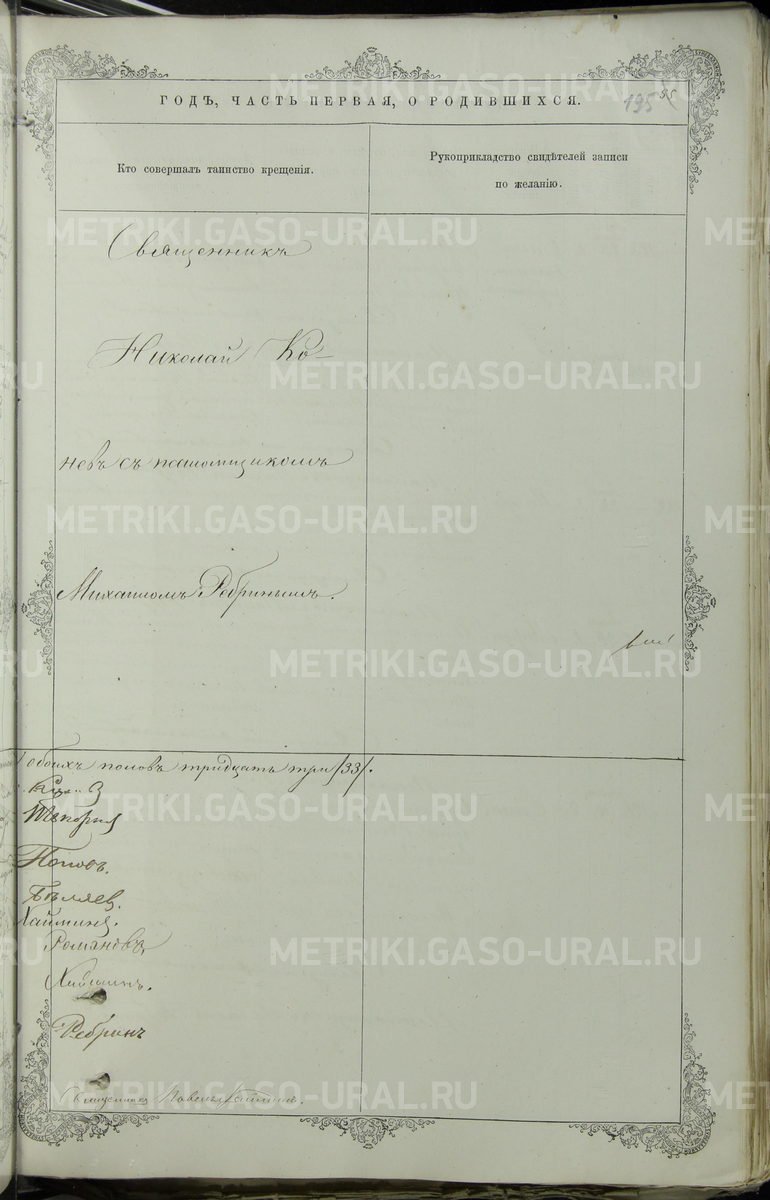 ГОДЪ, ЧАСТЬ ПЕРВАЯ, О РОДИВШИХСЯ.
195
Кто совершалъ таинство крещенія.
Рукоприкладство свидѣтелей записи
по желанію.
Священникъ
Николай Ко-
невъ съ псаломщикомъ
Михаиломъ Ребринымъ.
обоихъ половъ тридцать три /33/.
Поповъ.
Бѣляев.
Хаймина.
Романовъ
Ребринъ
Священникъ
METRIKI.GASO-URAL.RU